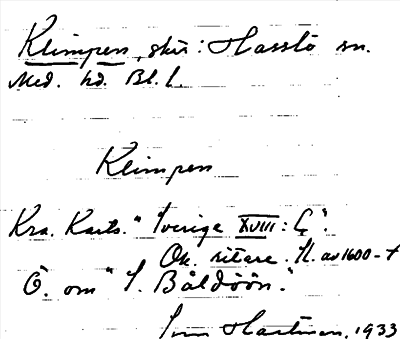 Klimpen, skär: Hasslö sn.
Med. hd. Bl. l.
Klimpen
Kra. Karts. "Sverige XVIII: C".
Ok. ritare. Sl. av 1600-t
Ö. om "S. Båldöön."
Hartman, 1933